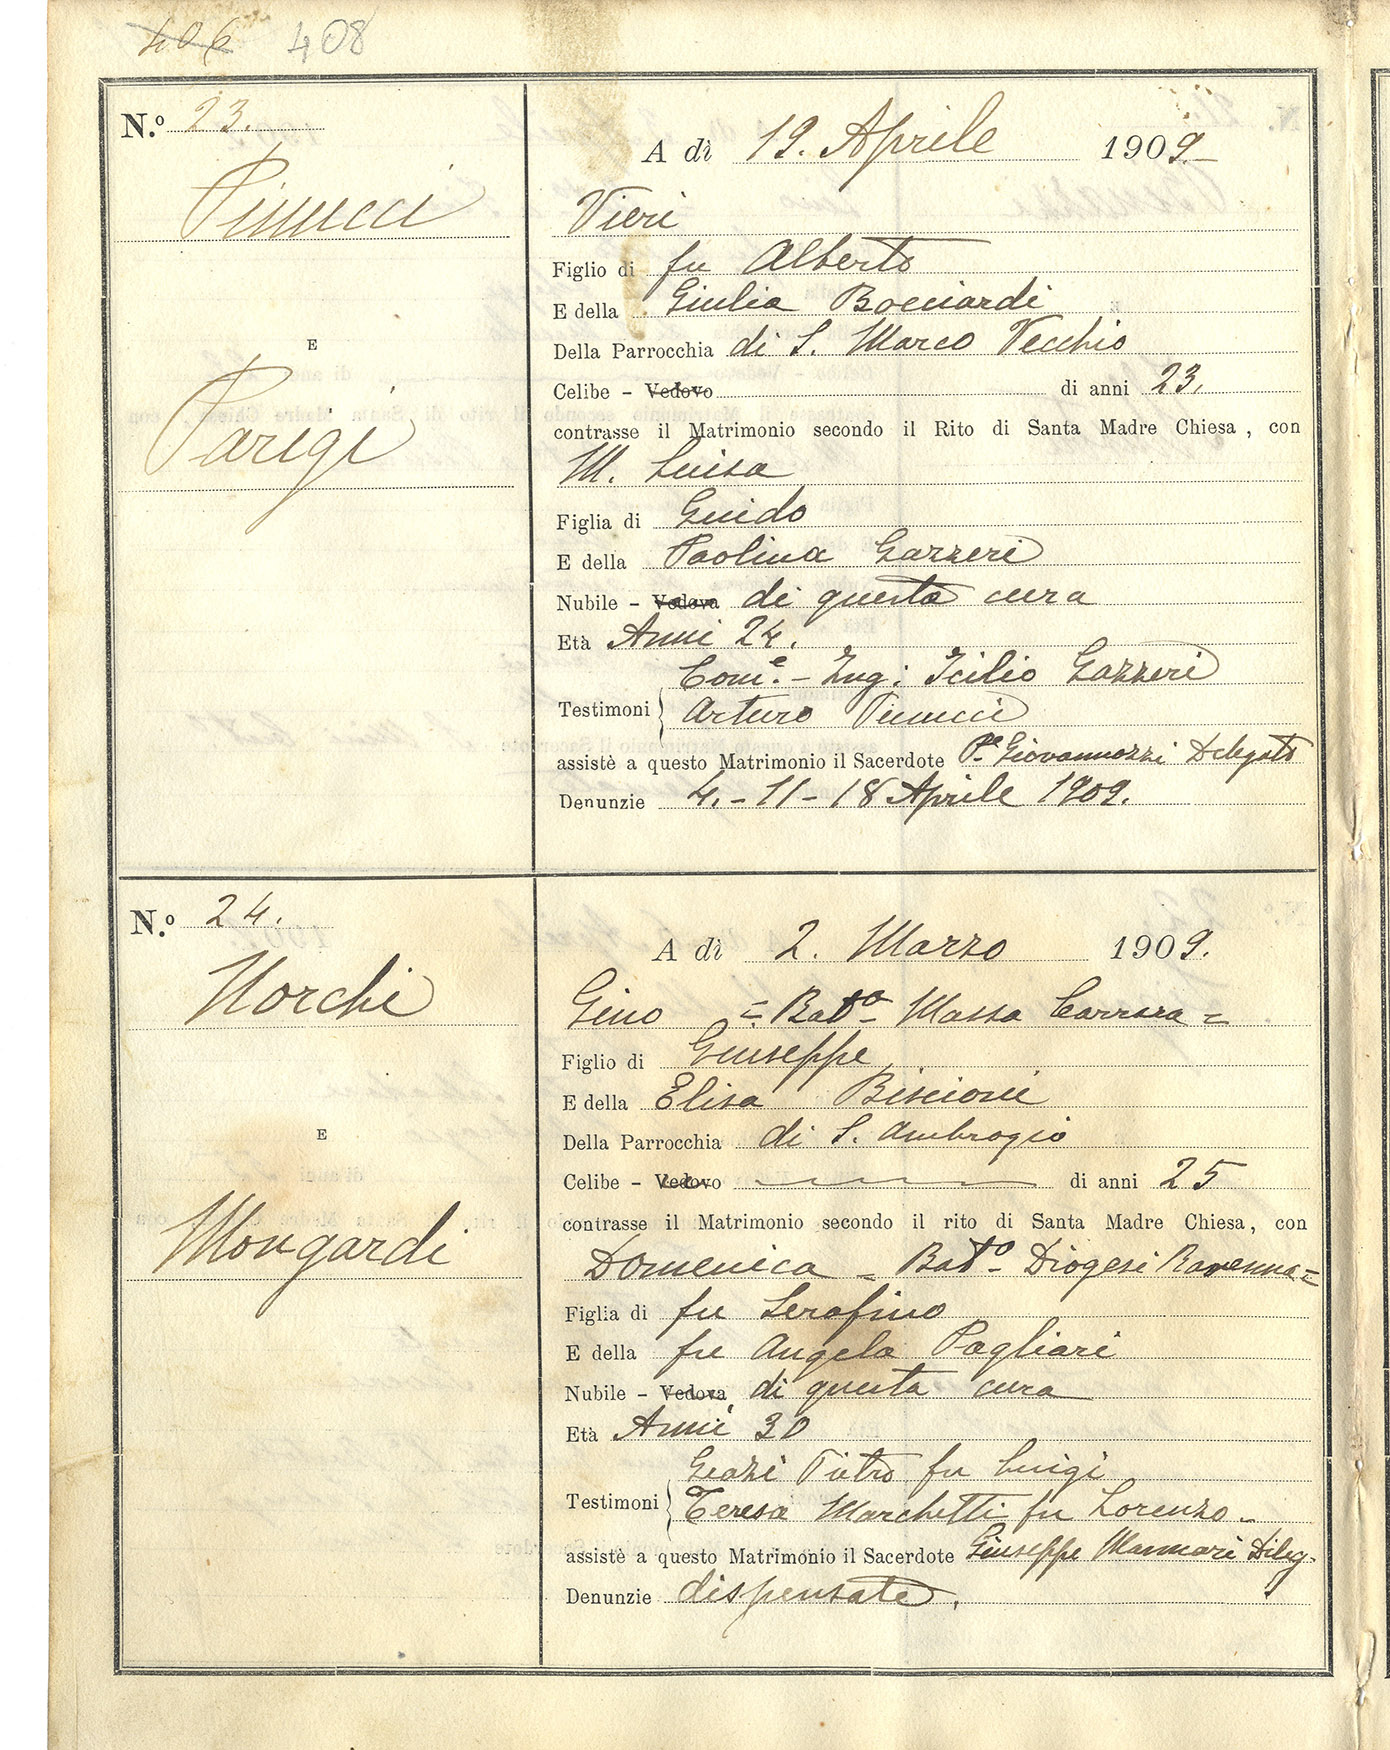 406 408
N.º 23.
Pinucci
E
Parigi
A dì 19. Aprile 1909.
Vieri
Figlio di fu Alberto
E della Giulia Bocciardi
Della Parrocchia di S. Marco Vecchio
Celibe - Vedovo di anni 23.
contrasse il Matrimonio secondo il Rito di Santa Madre Chiesa, con
M. Luisa
Figlia di Guido
E della Paolina Gazzeri
Nubile - Vedova di questa cura
Età Anni 24.
Testimoni Com.e - Ing: Icilio Gazzeri
Arturo Pinucci
assistè a questo Matrimonio il Sacerdote Giovannozzi Delegato
Denunzie 4. - 11 - 18 Aprile 1909.
N.º 24.
Norchi
E
Mongardi
A dì 2. Marzo 1909.
Gino = Bat.o - Massa Carrara =
Figlio di Giuseppe
E della Elisa Biscioni
Della Parrocchia di S. Ambrogio
Celibe - Vedovo di anni 25
contrasse il Matrimonio secondo il rito di Santa Madre Chiesa, con
Domenica = Bat.o - Diogesi Ravenna =
Figlia di fu Serafino
E della fu Angela Pagliari
Nubile - Vedova di questa cura
Età Anni 30
Testimoni Pietro fu Luigi
Teresa Marchetti fu Lorenzo -
assistè a questo Matrimonio il Sacerdote Giuseppe Mannari Deleg.
Denunzie dispensate.